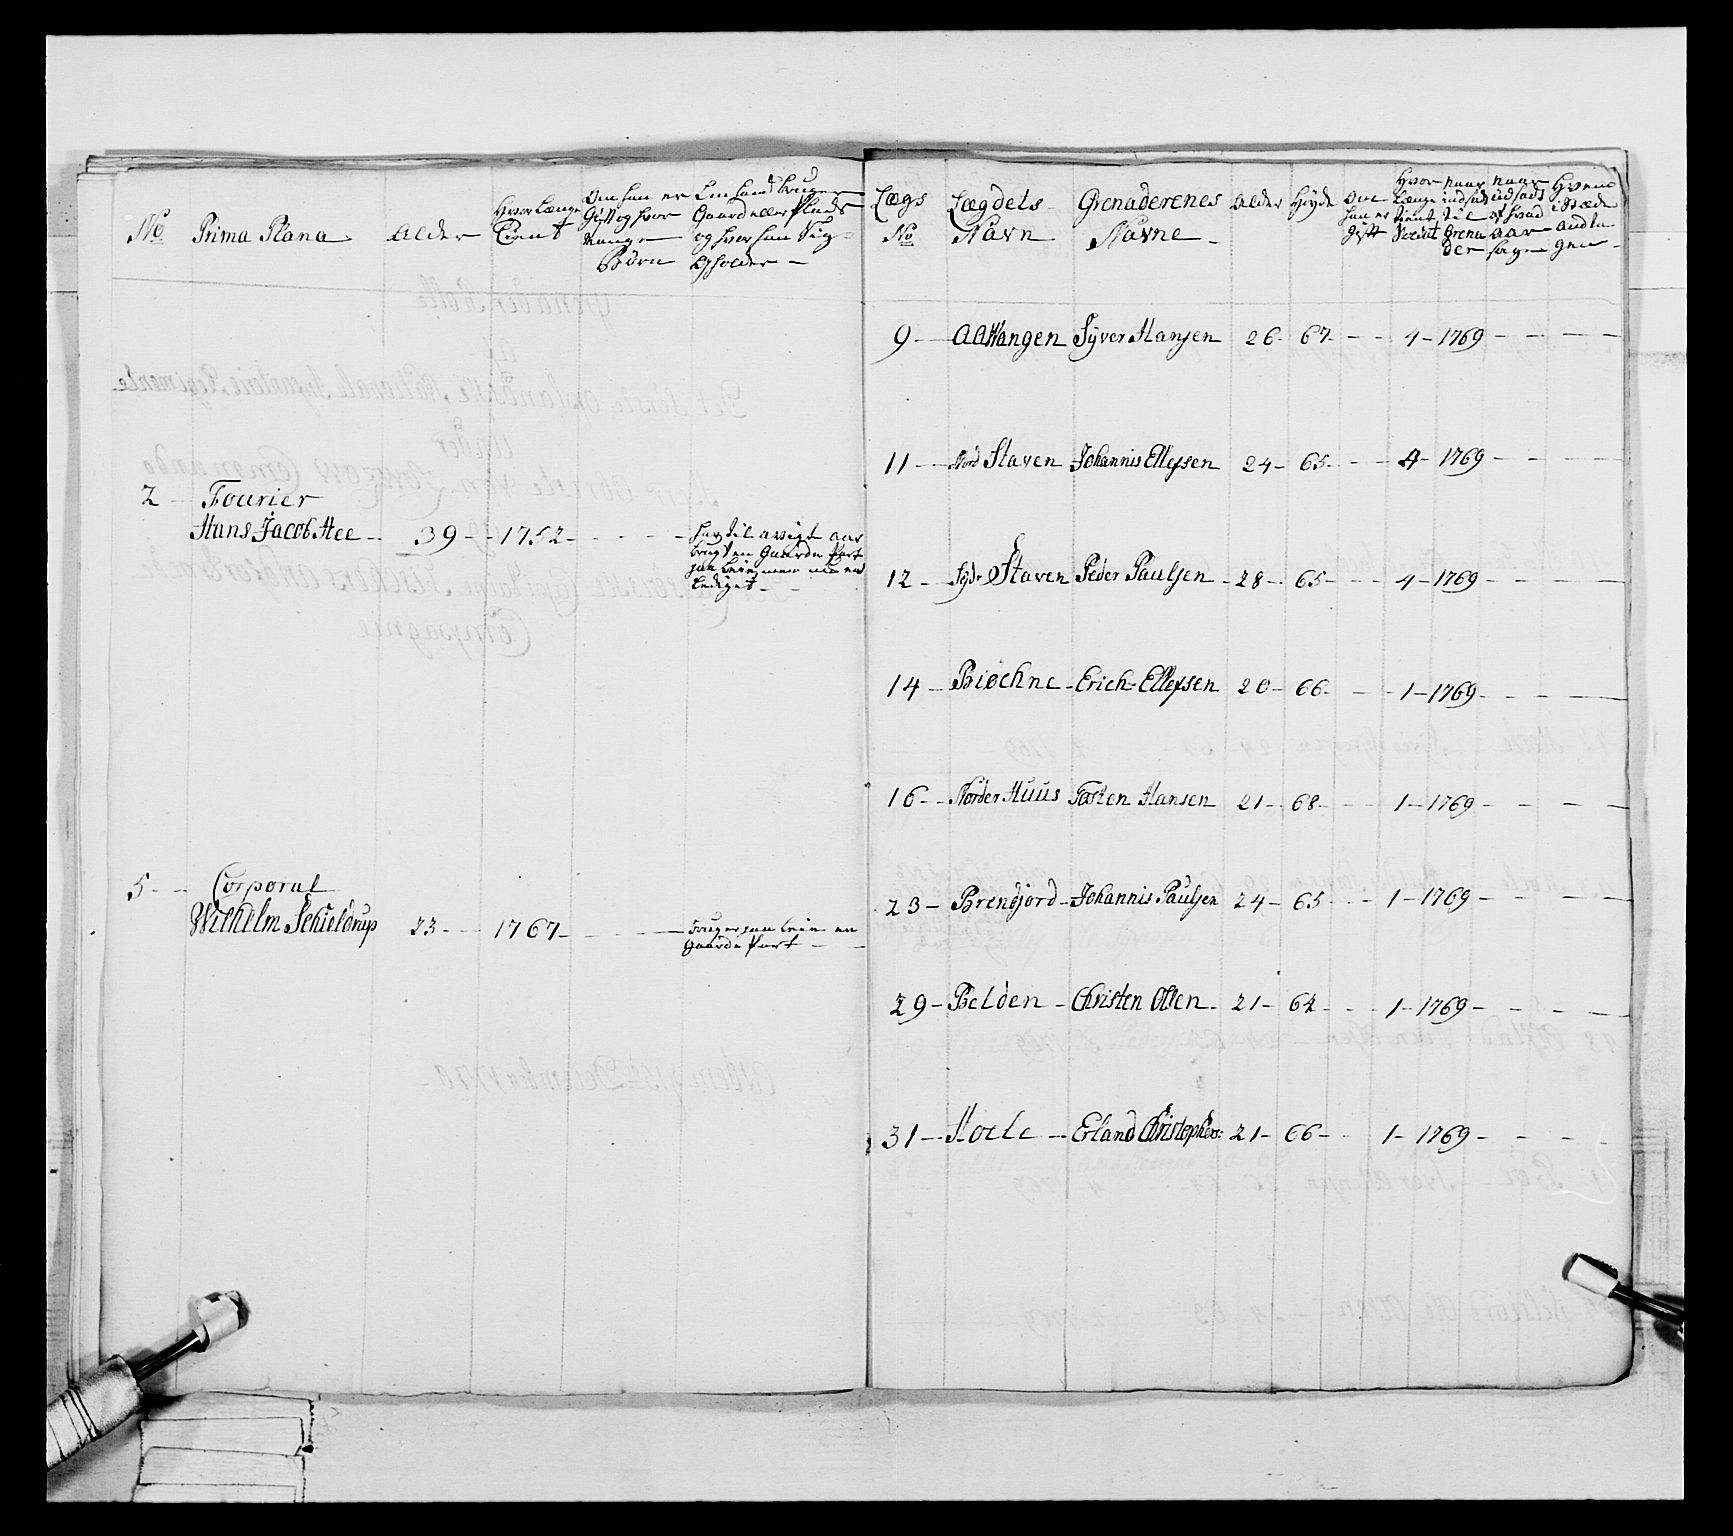 No Prima Plana Alder Hvor Længe Tient Om han er Gift og hvor mange Børn Om hand bruger Gaard eller Plads og hvor han Sig Opholder
2 Fourier
Hans Jacob Hee 39 1752 har til a vigt aar
brugt en Gaarde Part
Lediget
5 Corporal
Wilhelm Schieldrup 23 1767 Bruger paa Leie en
Gaarde Part
Lægs No Lægdets Navn Grenaderenes Navne Alder Høyde Om han er Gift Hvor Længe tient Soldat naar indsadt til Grenader naar udsadt af hvad Aarsage Hvem i Stæden andtagen
9 AAWangen Syver Hansen 26 67 4 1769
11 Nord Staven Johannis Ellefsen 24 65 4 1769
12 Syd Staven Peder Paulsen 28 65 4 1769
14 Biøchne Erich Ellefsen 20 66 1 1769
16 Norder Huus Tosten Hansen 21 68 1 1769
23 Brendjord Johannis Paulsen 24 65 1 1769
29 Belden Christen Olsen 21 64 1 1769
31 Hoele Erland Christophers: 21 66 1 1769